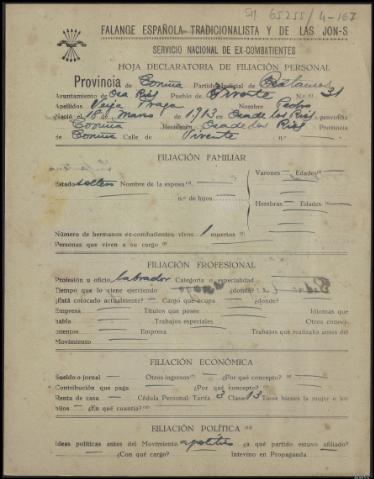 SM 65255/4-167
FALANGE ESPAÑOLA TRADICIONALISTA Y DE LAS JON-S
SERVICIO NACIONAL DE EX-COMBATIENTES
HOJA DECLARATORIA DE FILIACIÓN PERSONAL
Provincia de Coruña Partido Judicial de Betanzos
Ayuntamiento de Oza Rios Pueblo de Vivente N.º 31
Apellidos Veija Fraga Nombre Pedro
Nació el 18 de Marzo de 1,913 en Oza de los Rios provincia
de Coruña Residencia Oza de los Rios Provincia
de Coruña Calle de Vivente
FILIACIÓN FAMILIAR
Estado soltero Nombre de la esposa Varones Edades
n.º de hijos
Hembras Edades
Número de hermanos ex-combatientes vivos 1 muertos
Personas que viven a su cargo
FILIACIÓN PROFESIONAL
Profesión u oficio labrador Categoría o especialidad
Tiempo que lo viene ejerciendo ¿dónde?
¿Está colocado actualmente? — Cargo que ocupa ¿dónde?
Empresa — Títulos que posee Idiomas que
habla — Trabajos especiales Otros conoci-
mientos — Empresa Trabajos que realizaba antes del
Movimiento
FILIACIÓN ECONÓMICA
Sueldo o jornal — Otros ingresos — ¿Por qué concepto?
Contribución que paga — ¿Por qué concepto?
Renta de casa — Cédula Personal Tarifa 3 Clase 13 Tiene bienes la mujer o los
hijos — ¿En qué cuantía?
FILIACIÓN POLÍTICA
Ideas políticas antes del Movimiento apolitico ¿a qué partido estuvo afiliado?
— ¿Con qué cargo? Intervino en Propaganda